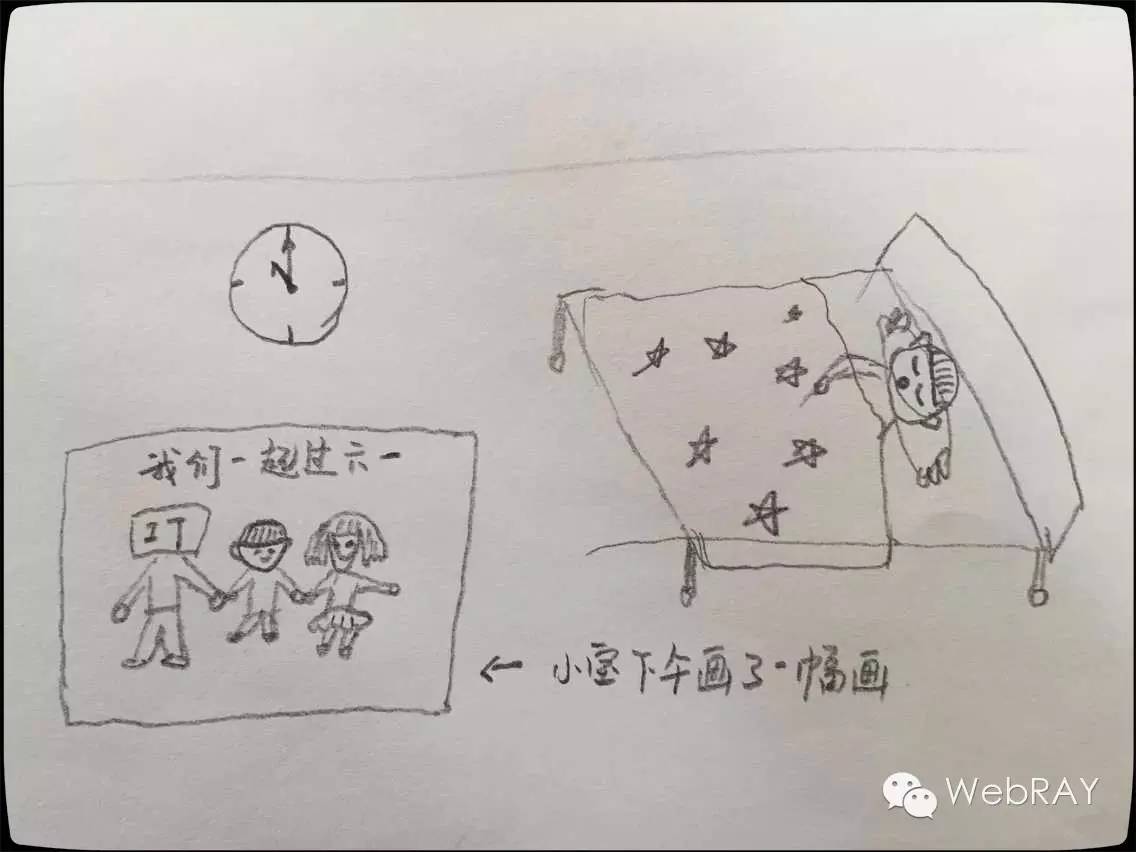 我们一起过六一
IT
← 小宝下午画了一幅画
WebRAY